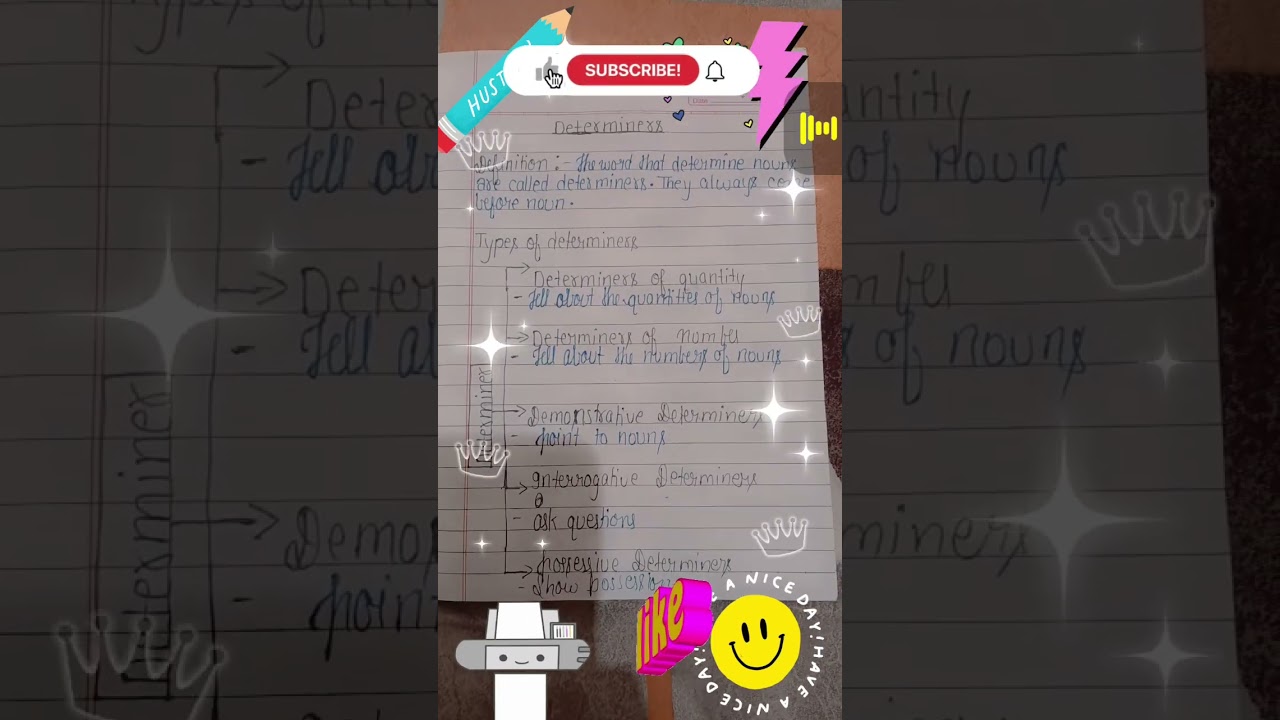 HUSTLE
SUBSCRIBE!
Determiners
Definition :- The word that determine nouns
are called determiners. They always come
before noun.
Types of determiners
Determiners of quantity
- Tell about the quantities of nouns
Determiners of number
- Tell about the numbers of nouns
Determiner
Demonstrative Determiners
- point to nouns
Interrogative Determiners
- ask questions
possessive Determiners
- Show possession
like
HAVE A NICE DAY! HAVE A NICE DAY!